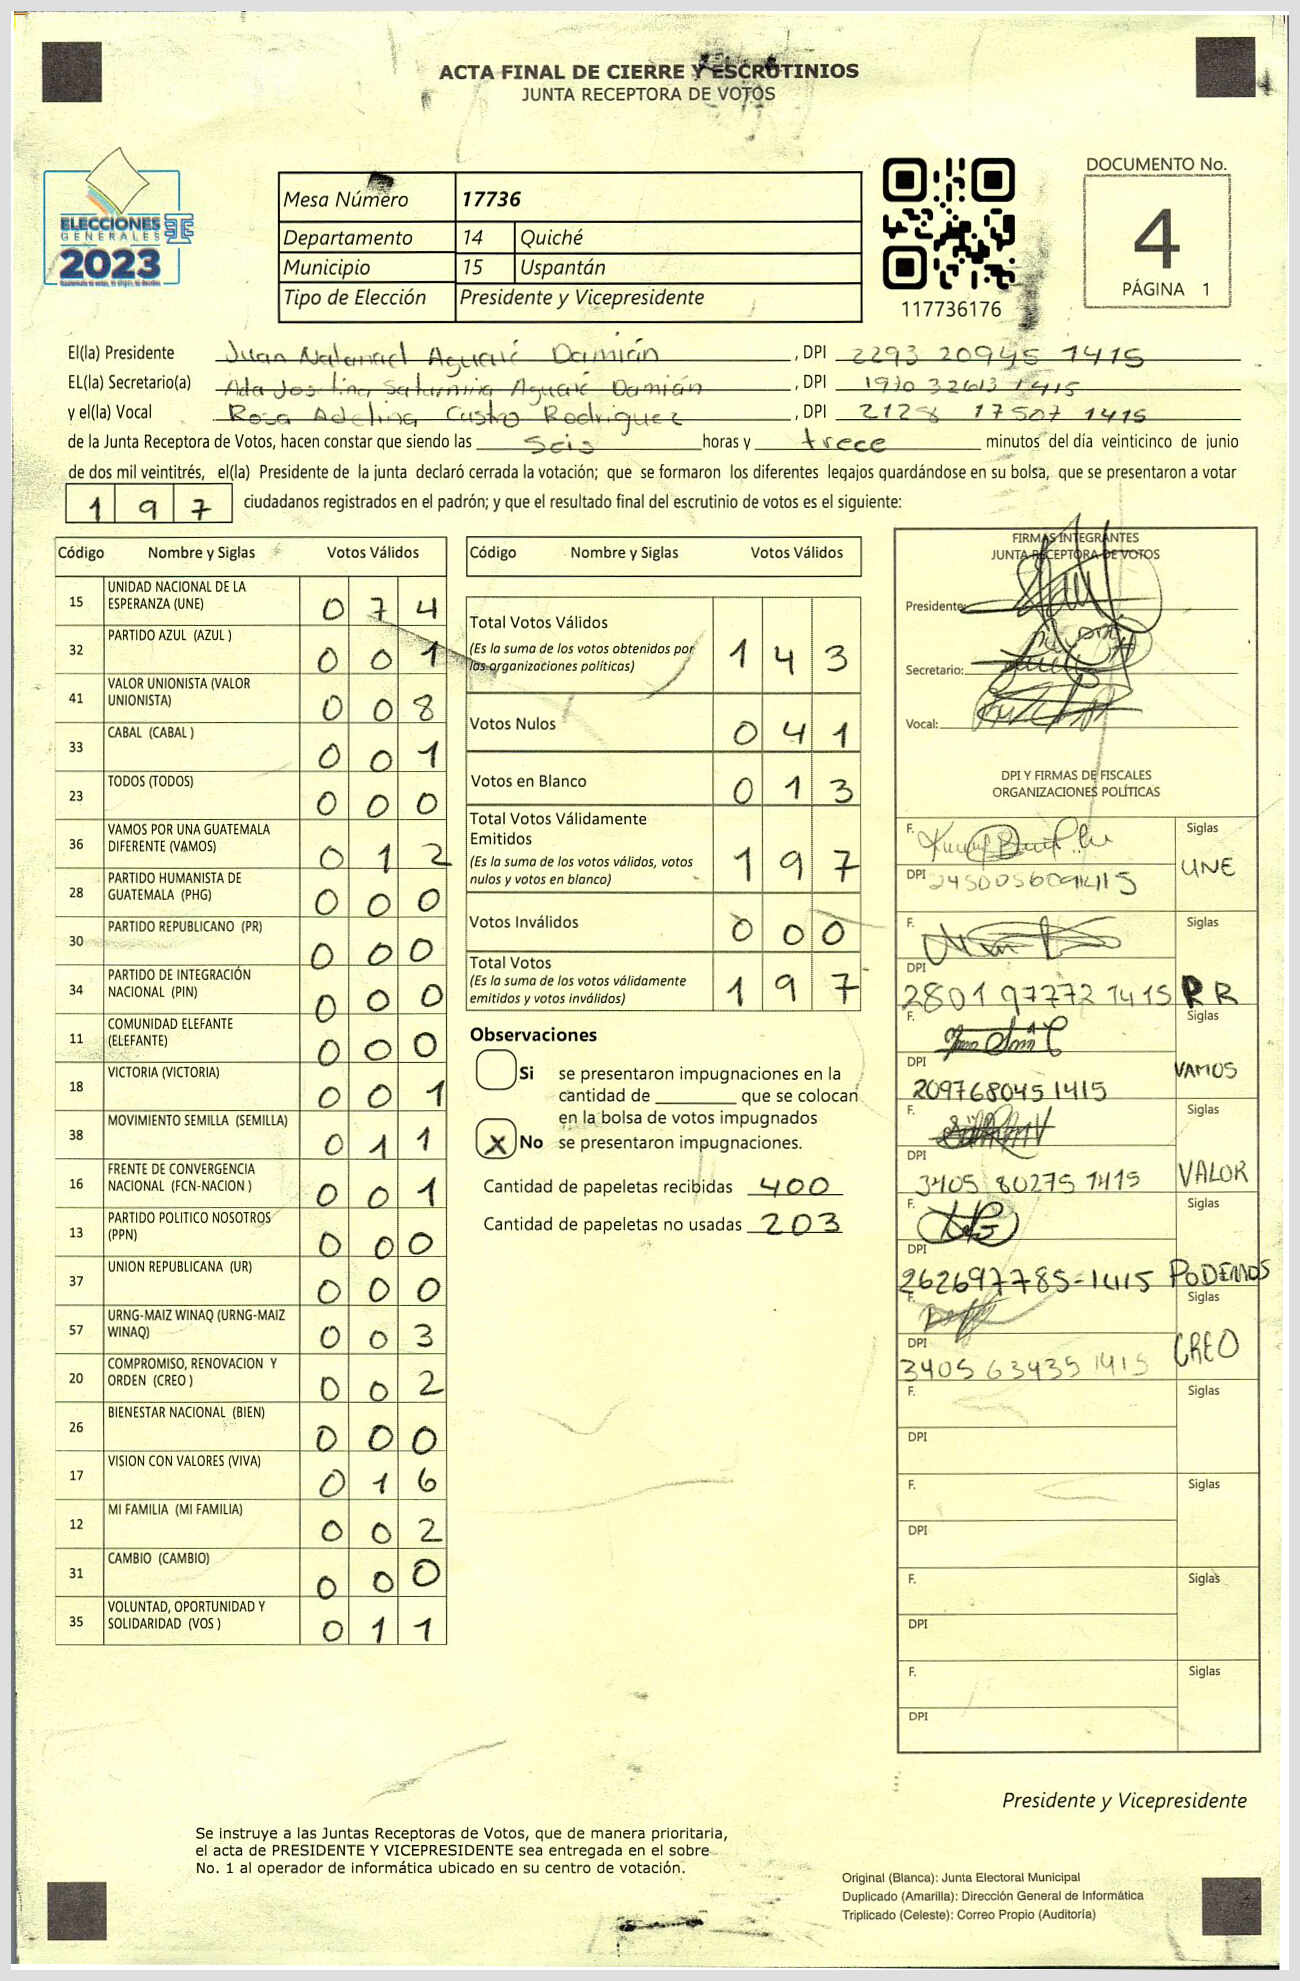 ACTA FINAL DE CIERRE Y ESCRUTINIOS
JUNTA RECEPTORA DE VOTOS
ELECCIONES
GENERALES
2023
Mesa Número 17736
Departamento 14 Quiché
Municipio 15 Uspantán
Tipo de Elección Presidente y Vicepresidente
117736176
DOCUMENTO No.
4
PÁGINA 1
El(la) Presidente Juan Natanael Aguaré Damián, DPI 2293 20945 1415
EL(la) Secretario(a) Ada Josefina Saturnina Aguaré Damián, DPI 1970 32613 1415
y el(la) Vocal Rosa Adelina Castro Rodriguez, DPI 2128 17507 1415
de la Junta Receptora de Votos, hacen constar que siendo las seis horas y trece minutos del día veinticinco de junio
de dos mil veintitrés, el(la) Presidente de la junta declaró cerrada la votación; que se formaron los diferentes legajos guardándose en su bolsa, que se presentaron a votar
197 ciudadanos registrados en el padrón; y que el resultado final del escrutinio de votos es el siguiente:
Código Nombre y Siglas Votos Válidos
15 UNIDAD NACIONAL DE LA ESPERANZA (UNE) 074
32 PARTIDO AZUL (AZUL ) 001
41 VALOR UNIONISTA (VALOR UNIONISTA) 008
33 CABAL (CABAL ) 001
23 TODOS (TODOS) 000
36 VAMOS POR UNA GUATEMALA DIFERENTE (VAMOS) 012
28 PARTIDO HUMANISTA DE GUATEMALA (PHG) 000
30 PARTIDO REPUBLICANO (PR) 000
34 PARTIDO DE INTEGRACIÓN NACIONAL (PIN) 000
11 COMUNIDAD ELEFANTE (ELEFANTE) 000
18 VICTORIA (VICTORIA) 001
38 MOVIMIENTO SEMILLA (SEMILLA) 011
16 FRENTE DE CONVERGENCIA NACIONAL (FCN-NACION ) 001
13 PARTIDO POLITICO NOSOTROS (PPN) 000
37 UNION REPUBLICANA (UR) 000
57 URNG-MAIZ WINAQ (URNG-MAIZ WINAQ) 003
20 COMPROMISO, RENOVACION Y ORDEN (CREO ) 002
26 BIENESTAR NACIONAL (BIEN) 000
17 VISION CON VALORES (VIVA) 016
12 MI FAMILIA (MI FAMILIA) 002
31 CAMBIO (CAMBIO) 000
35 VOLUNTAD, OPORTUNIDAD Y SOLIDARIDAD (VOS ) 011
Código Nombre y Siglas Votos Válidos
Total Votos Válidos 143
(Es la suma de los votos obtenidos por
las organizaciones políticas)
Votos Nulos 041
Votos en Blanco 013
Total Votos Válidamente
Emitidos 197
(Es la suma de los votos válidos, votos
nulos y votos en blanco)
Votos Inválidos 000
Total Votos 197
(Es la suma de los votos válidamente
emitidos y votos inválidos)
Observaciones
Si se presentaron impugnaciones en la
cantidad de ________ que se colocan
en la bolsa de votos impugnados
X No se presentaron impugnaciones.
Cantidad de papeletas recibidas 400
Cantidad de papeletas no usadas 203
FIRMAS INTEGRANTES
JUNTA RECEPTORA DE VOTOS
Presidente:
Secretario:
Vocal:
DPI Y FIRMAS DE FISCALES
ORGANIZACIONES POLÍTICAS
F. Siglas
DPI UNE
F. Siglas
DPI 2801 97772 1415 PR
F. Siglas
DPI 209768045 1415 VAMOS
F. Siglas
DPI 3405 80275 1415 VALOR
F. Siglas
DPI 262697785-1415 PODEMOS
F. Siglas
DPI 3405 63435 1415 CREO
F. Siglas
DPI
F. Siglas
DPI
F. Siglas
DPI
F. Siglas
DPI
Presidente y Vicepresidente
Se instruye a las Juntas Receptoras de Votos, que de manera prioritaria,
el acta de PRESIDENTE Y VICEPRESIDENTE sea entregada en el sobre
No. 1 al operador de informática ubicado en su centro de votación.
Original (Blanca): Junta Electoral Municipal
Duplicado (Amarilla): Dirección General de Informática
Triplicado (Celeste): Correo Propio (Auditoría)